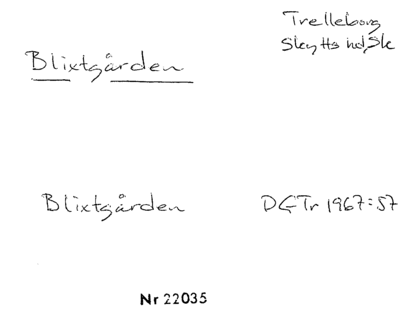 Trelleborg
Skytts hd, Sk
Blixtgården
Blixtgården DGTr 1967:57
Nr 22035